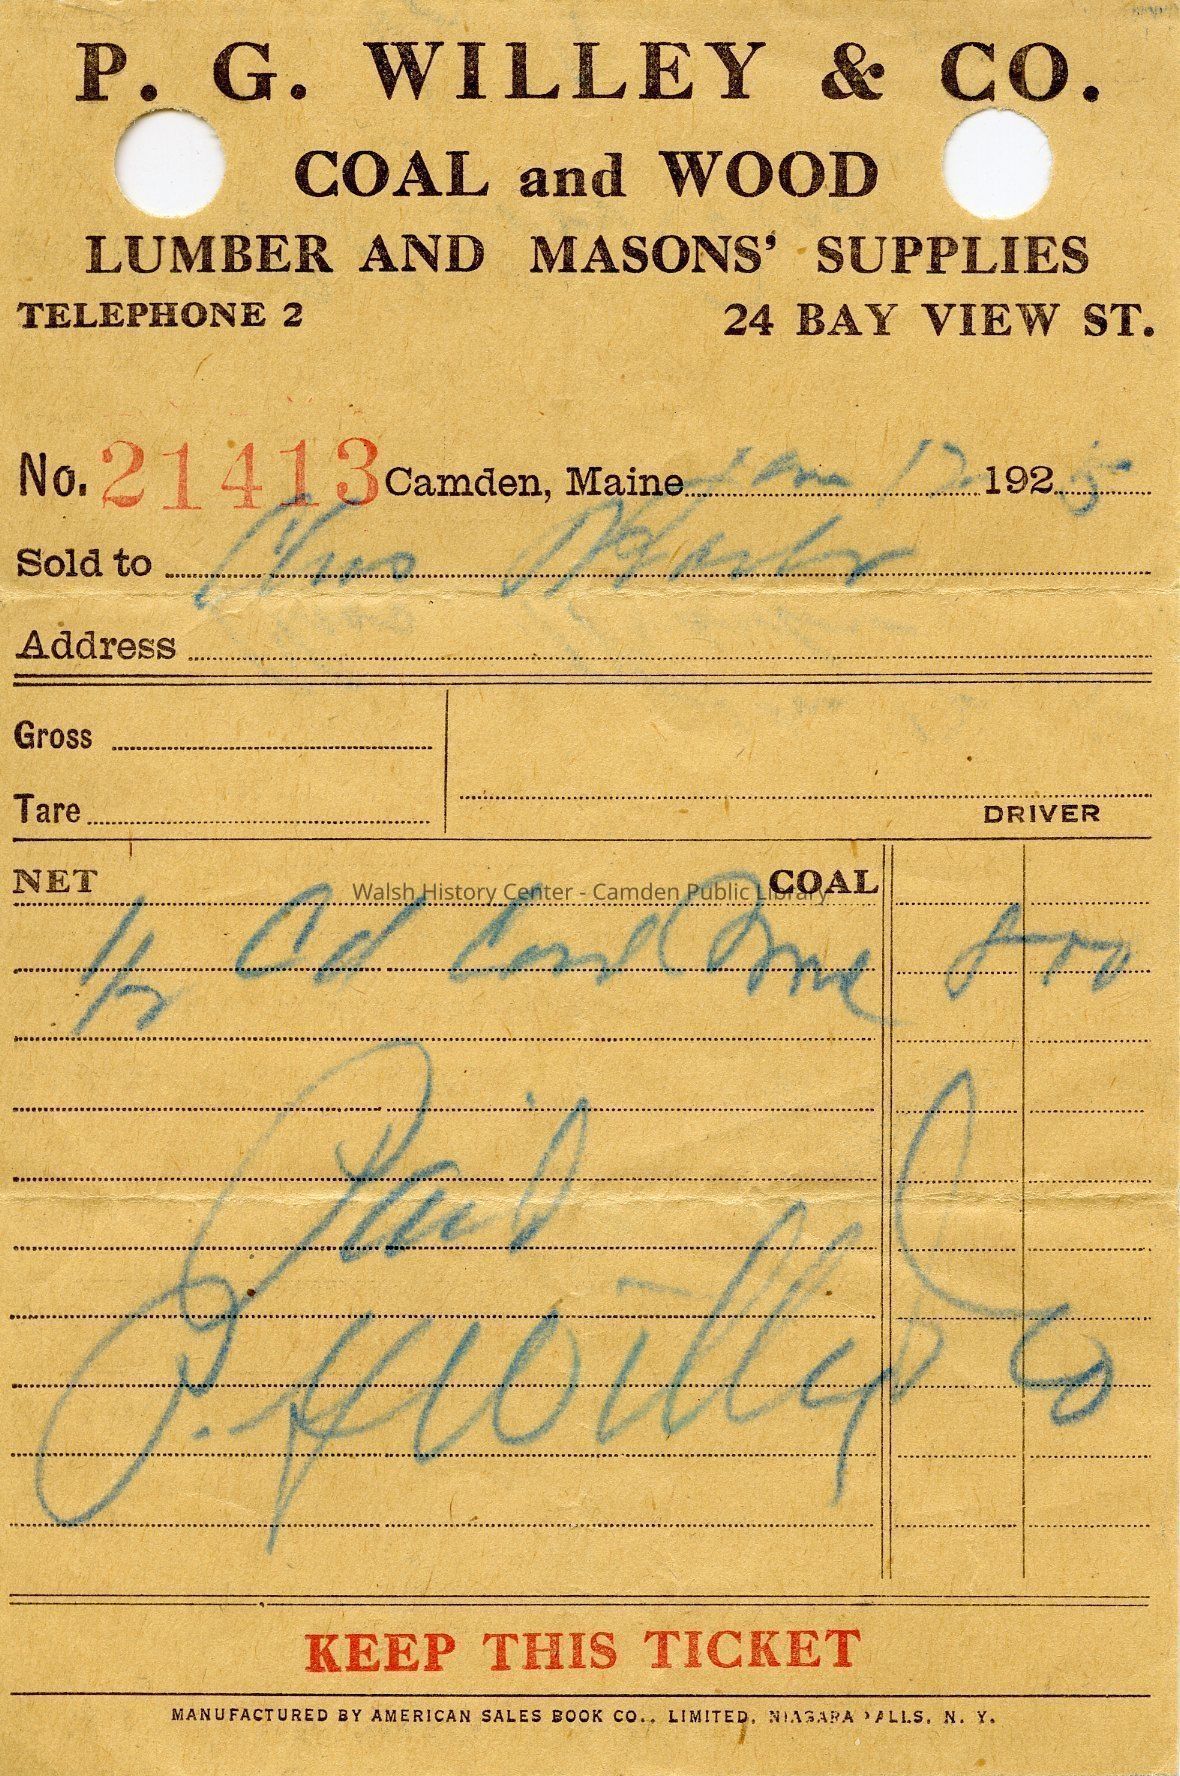 P. G. WILLEY & CO.
COAL and WOOD
LUMBER AND MASONS' SUPPLIES
TELEPHONE 2 24 BAY VIEW ST.
No. 21413 Camden, Maine Jan 12 1925
Sold to Chas
Address
Gross
Tare
DRIVER
NET COAL
Walsh History Center - Camden Public Library
1/2 Cd Cord 500
Paid
P. G. Willey & Co
KEEP THIS TICKET
MANUFACTURED BY AMERICAN SALES BOOK CO., LIMITED, NIAGARA FALLS, N. Y.